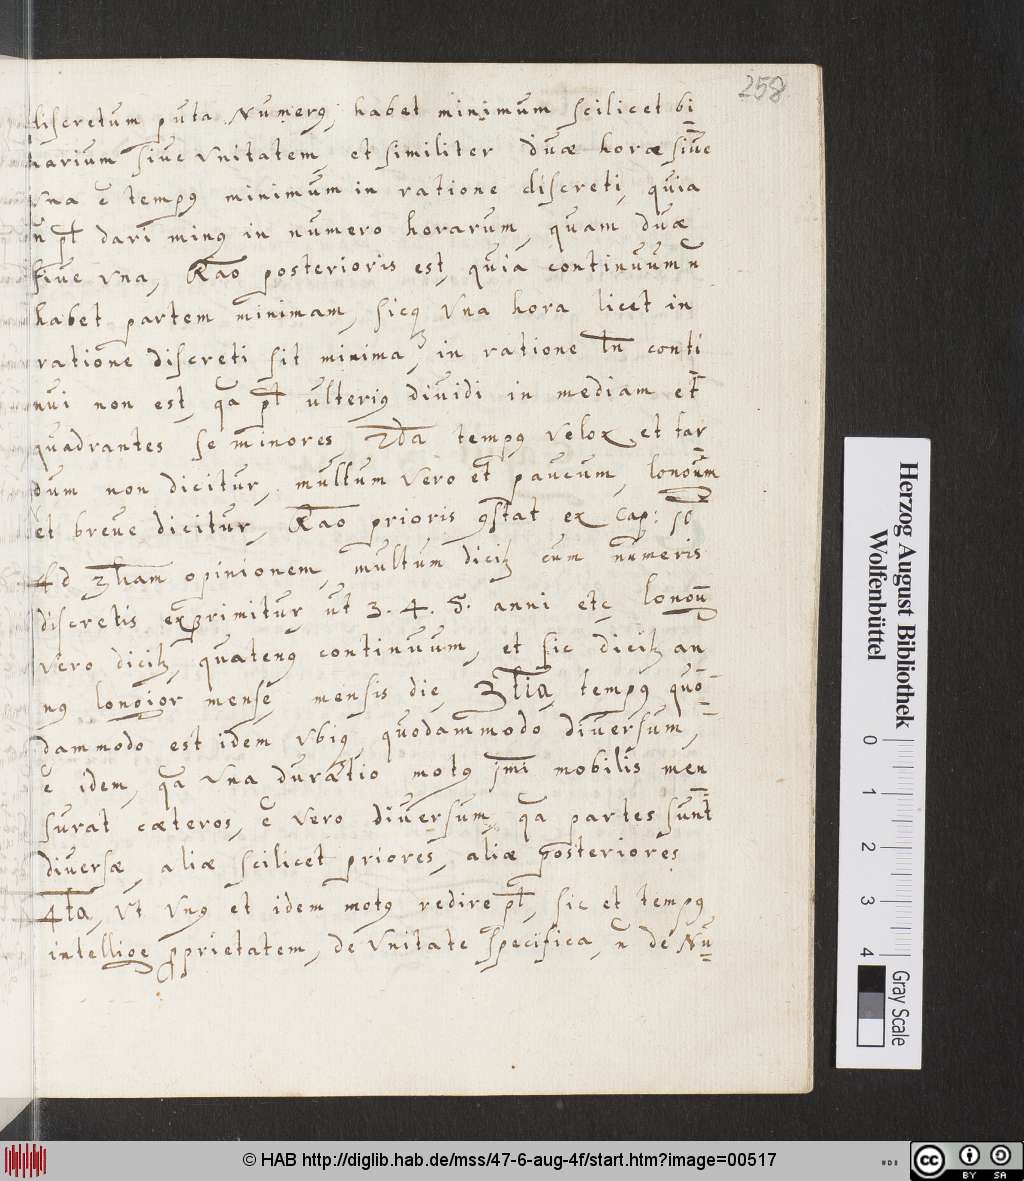 258
discretum puta Numerꝰ, habet minimum scilicet bi
narium siue vnitatem, et similiter duæ horæ siue
vna ē tempꝰ minimum in ratione discreti, quia
n̄ pt̄ dari minꝰ in numero horarum, quam duæ
siue vna, Rāo posterioris est, quia continuum n̄
habet partem minimam, sicq vna hora licet in
ratione discreti sit minima, in ratione tn̄ conti
nui non est, qā pt̄ ulteriꝰ diuidi in mediam et
quadrantes se minores, 2da tempꝰ velox et tar
dum non dicitur, multum vero et paucum, longum
et breue dicitur, Rāo prioris ꝯstat ex Cap:
Ad opinionem, multum dicitꝛ cum numeris
discretis exprimitur ut 3. 4. 5. anni etc longū
vero dicitꝛ, quatenꝰ continuum, et sic dicitꝛ an
nꝰ longior mense mensis die 3tia, tempꝰ quo-
dammodo est idem vbiꝗ, quodammodo diuersum,
ē idem, qā vna duratio motꝰ pmi mobilis men
surat cæteros, ē vero diuersum, qā partes sunt
diuersæ, aliæ scilicet priores, aliæ posteriores
4ta, vt vnꝰ et idem motꝰ redire pt̄, sic et tempꝰ
intellige pprietatem, de vnitate specifica, n̄ de Nu=
Herzog August Bibliothek
Wolfenbüttel
0 1 2 3 4
Gray Scale
© HAB http://diglib.hab.de/mss/47-6-aug-4f/start.htm?image=00517
cc BY SA